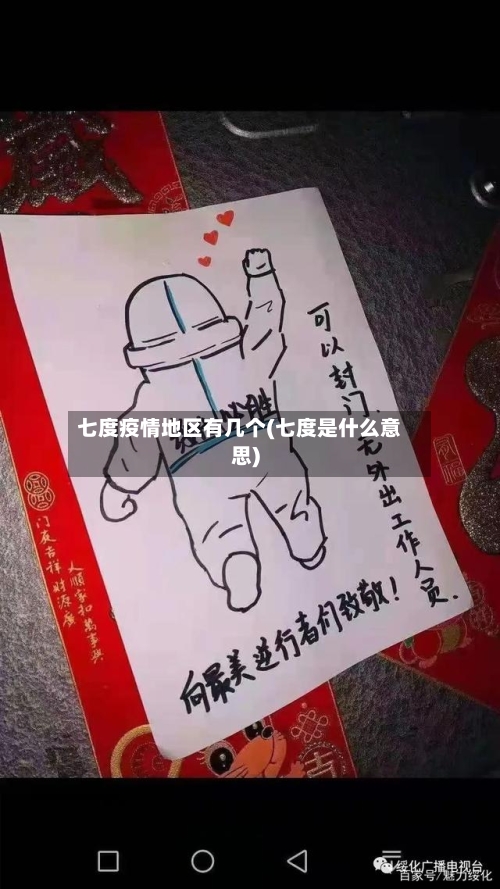 七度疫情地区有几个(七度是什么意
思)
必胜
可以封门,无外出工作人员.
向最美逆行者们致敬!
门友吉祥 财源广
人顺家和万事兴
吉
绥化广播电视台
百家号/魅力绥化